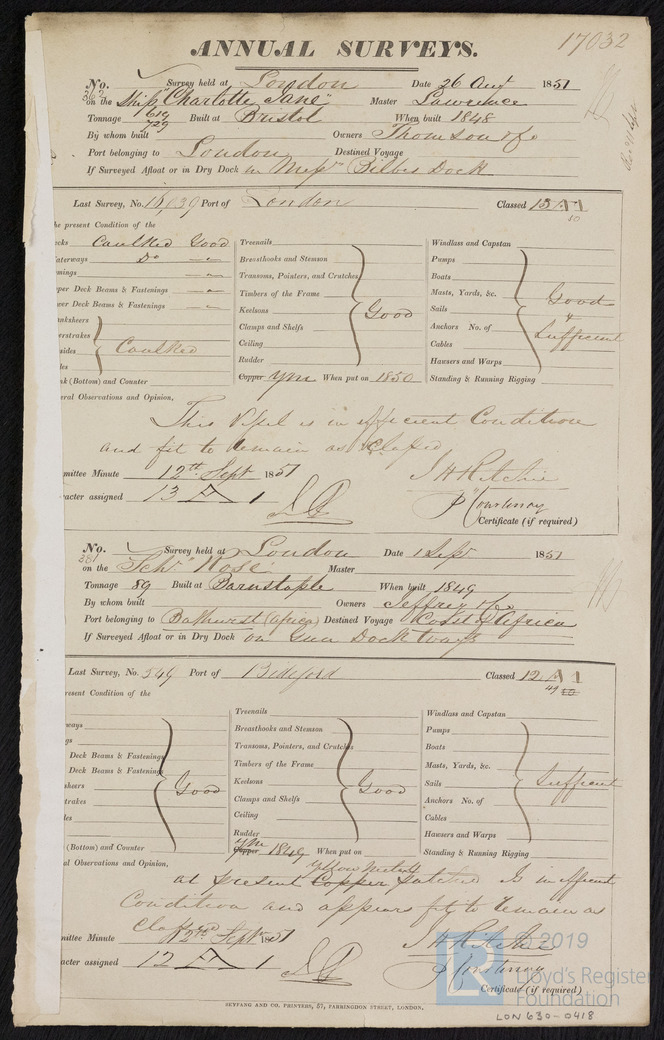 17032
ANNUAL SURVEYS.
No. 362 Survey held at London Date 26 Aug 1851
on the Ship "Charlotte Jane" Master Lawrence
Tonnage 619 729 Built at Bristol When built 1848
By whom built Owners Thomson & Co
Port belonging to London Destined Voyage
If Surveyed Afloat or in Dry Dock in Messrs Bilbes Dock
Last Survey, No. 16,039 Port of London Classed 13 A1
10
he present Condition of the
ecks Caulked Good
aterways Do
mings
per Deck Beams & Fastenings
wer Deck Beams & Fastenings
anksheers
erstrakes
sides Caulked
les
nk (Bottom) and Counter
Treenails
Breasthooks and Stemson
Transoms, Pointers, and Crutches
Timbers of the Frame
Keelsons Good
Clamps and Shelfs
Ceiling
Rudder
Copper YM When put on 1850
Windlass and Capstan
Pumps
Boats
Masts, Yards, &c. Good
Sails &
Anchors No. of Sufficient
Cables
Hawsers and Warps
Standing & Running Rigging
eral Observations and Opinion,
This Vessel is in efficient Condition
and fit to remain as Classed
J H Ritchie
P Courtenay
Certificate (if required)
mmittee Minute 12th Sept 1851
racter assigned 13 A 1
No. 381 Survey held at London Date 1 Sept 1851
on the Schr "Rose" Master
Tonnage 89 Built at Barnstaple When built 1849
By whom built Owners Jeffrey & Co
Port belonging to Bathurst (Africa) Destined Voyage Coast of Africa
If Surveyed Afloat or in Dry Dock on Gun Dock ways
Last Survey, No. 549 Port of Bideford Classed 12 A1
49 10
resent Condition of the
ways
gs
Deck Beams & Fastenings
Deck Beams & Fastenings
sheers Good
trakes
les
(Bottom) and Counter
Treenails
Breasthooks and Stemson
Transoms, Pointers, and Crutches
Timbers of the Frame
Keelsons Good
Clamps and Shelfs
Ceiling
Rudder
YM
Copper 1849 When put on
Windlass and Capstan
Pumps
Boats
Masts, Yards, &c.
Sails Sufficient
Anchors No. of
Cables
Hawsers and Warps
Standing & Running Rigging
al Observations and Opinion,
Yellow Metal
at present Copper patched Is in efficient
Condition and appears fit to remain as
Classed
J H Ritchie
P Courtenay
Certificate (if required)
mittee Minute 12th Sept 1851
acter assigned 12 A 1
SEYFANG AND CO. PRINTERS, 57, FARRINGDON STREET, LONDON.
LR © 2019
Lloyd's Register
Foundation
LON 630-0418